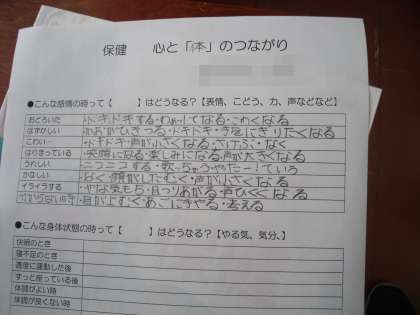 保健 心と「体」のつながり
●こんな感情の時って【 】はどうなる?【表情、こどう、力、声などなど】
おどろいた ・ドキドキする・わぁってなる・こわくなる
はずかしい ・ドキドキ・きえにぎりたくなる
こわい ・ドキドキ・声が小さくなる・さけぶ・なく
はりきっている ・笑顔になる・楽しみになる・声が大きくなる
うれしい ・ニコニコする・歌っちゃう・やたー!ていう
かなしい ・なく・顔がしたむく・声が小さくなる
イライラする ・やな気もち・目つりあがる・声ひくくなる
・目がよむく・あごに手やる・考える
●こんな身体状態の時って【 】はどうなる?【やる気、気分、】
快眠のとき
寝不足のとき
適度に運動した後
ずっと座っている後
体調がよい時
体調が良くない時